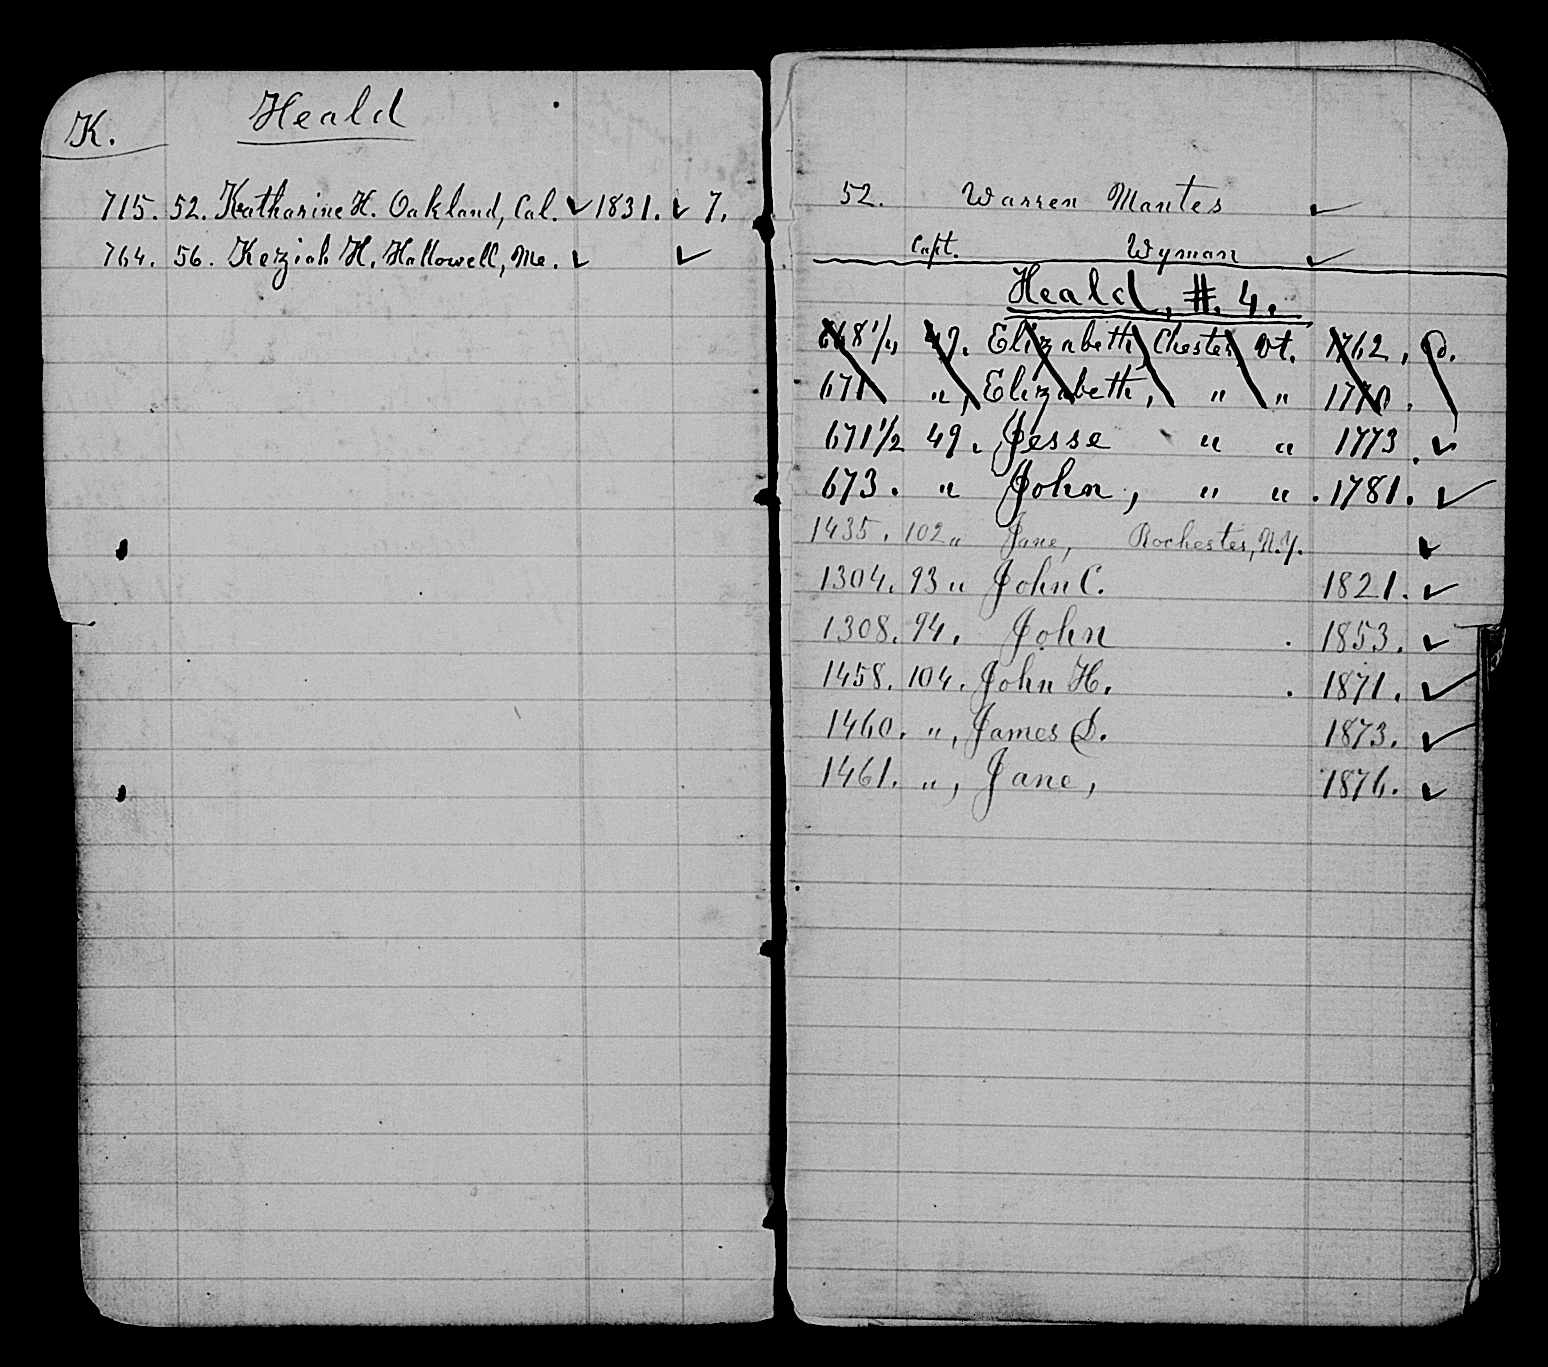 K. Heald
715. 52. Katharine H. Oakland, Cal. ✓ 1831. ✓ 7.
764. 56. Keziah H. Hallowell, Me. ✓ ✓
52. Warren Mantes ✓
Capt. Wyman ✓
Heald, #. 4.
668½ 49. Elizabeth, Chester, Vt. 1762,
671 " , Elizabeth, " " 1770.
671½ 49. Jesse " " 1773. ✓
673. " John, " " . 1781. ✓
1435. 102 " Jane, Rochester, N.Y. ✓
1304. 93 " John C. 1821. ✓
1308. 94. John . 1853. ✓
1458. 104. John H. . 1871. ✓
1460. " , James D. 1873. ✓
1461. " , Jane, 1876. ✓